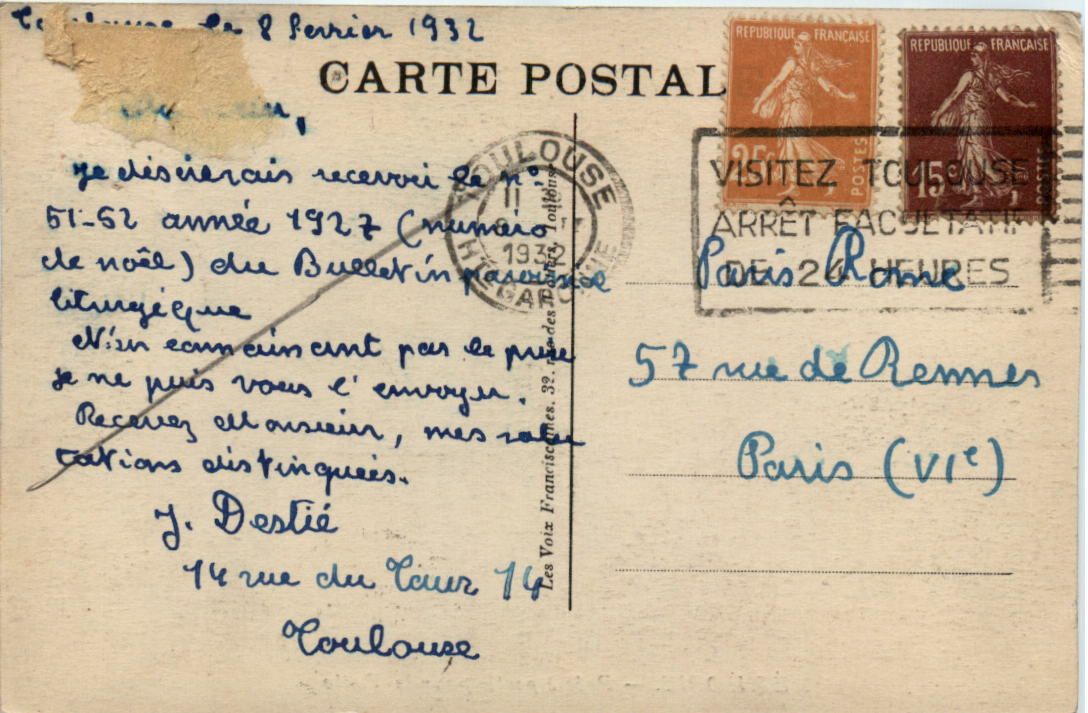 le 8 Février 1932
CARTE POSTAL
Je désirerais recevoir le n°
51-52 année 1927 (numéro
de noël) du Bulletin paroissial
liturgique
N'en connaissant pas le prix
je ne puis vous l'envoyer.
Recevez Monsieur, mes salu
tations distinguées.
J. Destié
14 rue du Taur 14
Toulouse
Les Voix Franciscaines, 32, rue des Toulouse
TOULOUSE
1932
HTE GARONNE
REPUBLIQUE FRANÇAISE
25c
POSTES
REPUBLIQUE FRANÇAISE
15c
POSTES
VISITEZ TOULOUSE
ARRÊT FACULTATIF
DE 24 HEURES
Paris Rome
57 rue de Rennes
Paris (VIe)